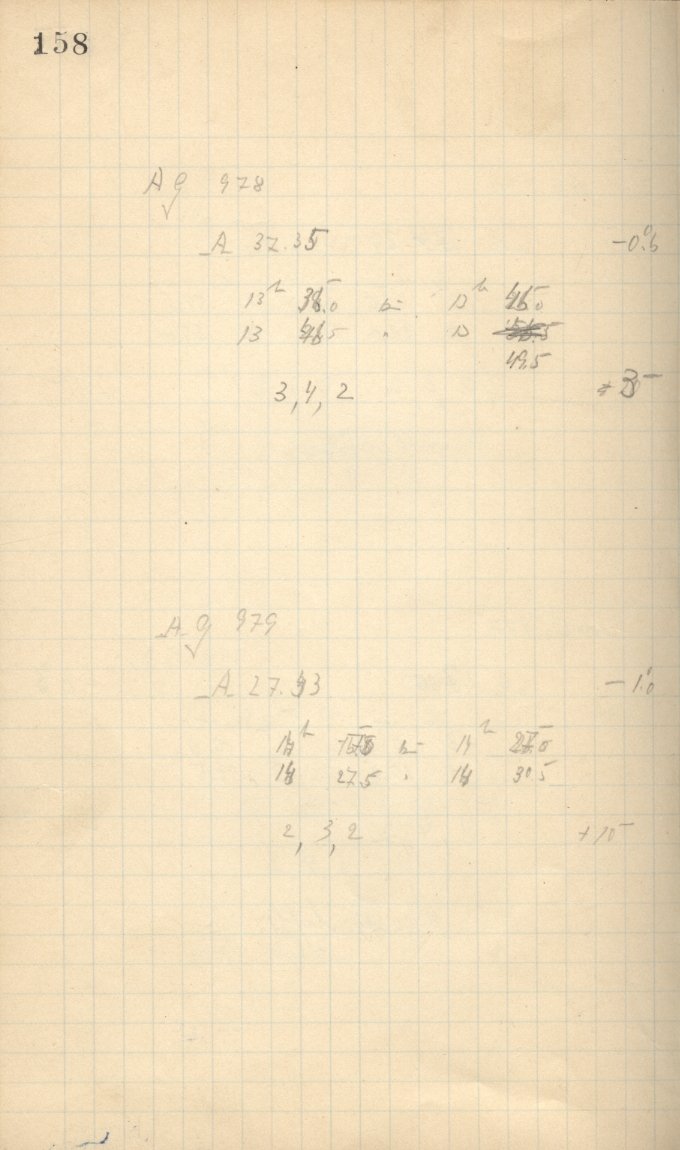 158
A G 978
A 37.35 -0.6
13h 38.0 bis 13h 46.0
13 46.5 " 13
49.5
3, 4, 2
A G 979
A 27.43 -1.0
14h bis 14h 27.0
14 27.5 " 14 30.5
2, 3, 2 +10